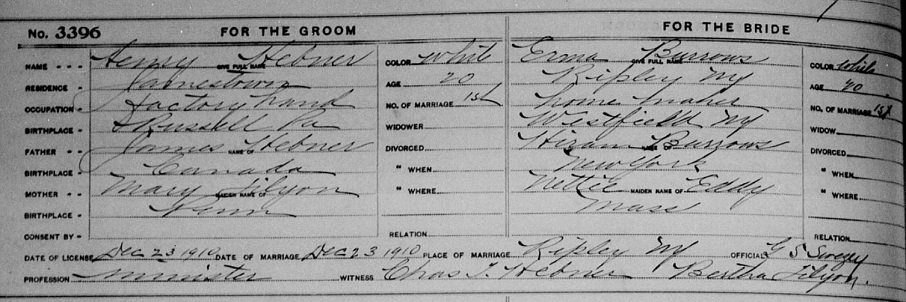 No. 3396 FOR THE GROOM FOR THE BRIDE
NAME Henry Hebner GIVE FULL NAME COLOR White Erma Burrows GIVE FULL NAME COLOR White
RESIDENCE Jamestown AGE 20 Ripley NY AGE 20
OCCUPATION Factory hand NO. OF MARRIAGE 1st home maker NO. OF MARRIAGE 1st
BIRTHPLACE Russell Pa WIDOWER Westfield NY WIDOW
FATHER James NAME OF Hebner DIVORCED Hiram NAME OF Burrows DIVORCED
BIRTHPLACE Canada " WHEN New York " WHEN
MOTHER Mary MAIDEN NAME OF Filyon " WHERE Nettie MAIDEN NAME OF Eddy " WHERE
BIRTHPLACE Penn Mass
CONSENT BY RELATION RELATION
DATE OF LICENSE Dec 23 1910 DATE OF MARRIAGE Dec 23 1910 PLACE OF MARRIAGE Ripley NY OFFICIAL G S Swezey
PROFESSION minister WITNESS Chas I. Hebner Bertha Filyon.